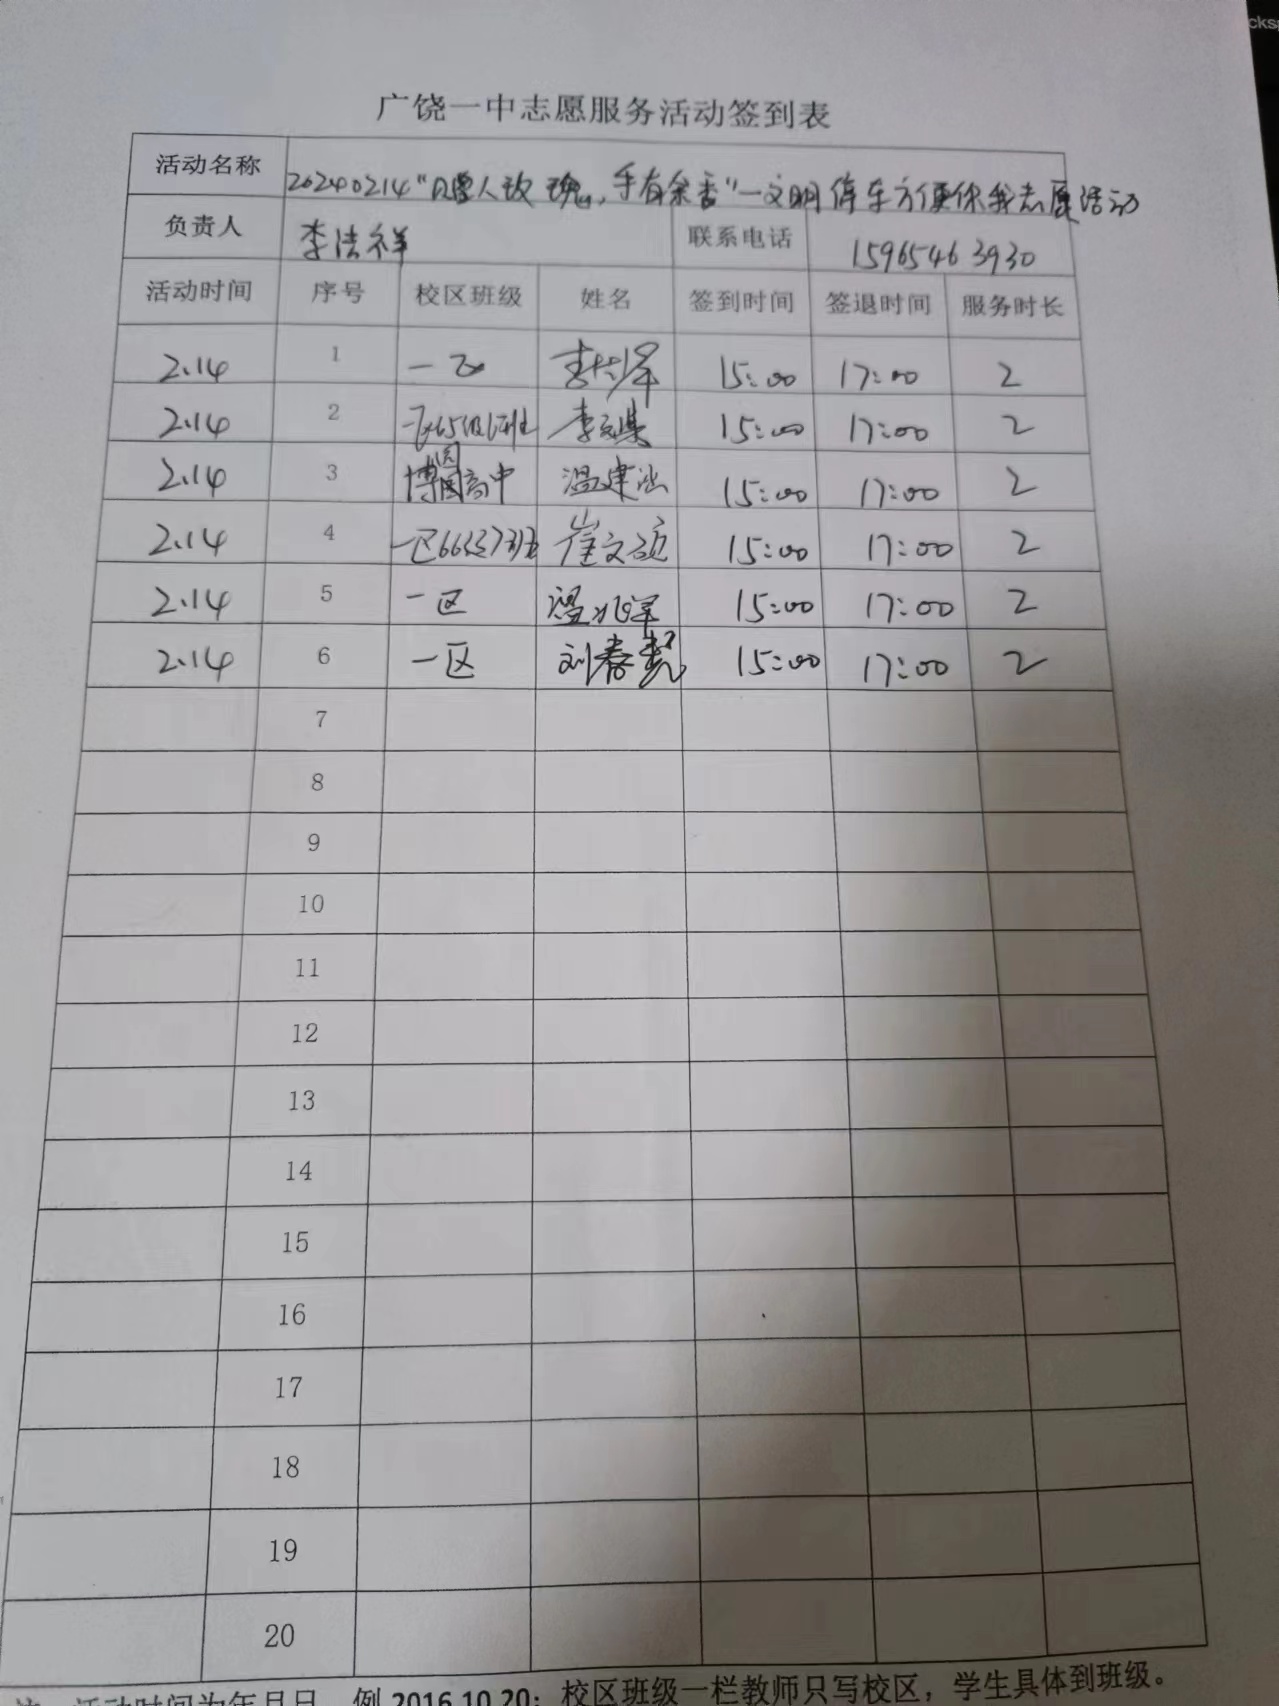 广饶一中志愿服务活动签到表
活动名称 20240214“赠人玫瑰，手有余香”—文明停车方便你我志愿活动
负责人 李洪祥 联系电话 15965463930
活动时间 序号 校区班级 姓名 签到时间 签退时间 服务时长
2.14 1 一区 15:00 17:00 2
2.14 2 李文琪 15:00 17:00 2
2.14 3 博园高中 温建 15:00 17:00 2
2.14 4 一区 崔文硕 15:00 17:00 2
2.14 5 一区 温兆军 15:00 17:00 2
2.14 6 一区 刘春 15:00 17:00 2
7
8
9
10
11
12
13
14
15
16
17
18
19
20
活动时间为年月日，例 2016.10.20；校区班级一栏教师只写校区，学生具体到班级。
cks